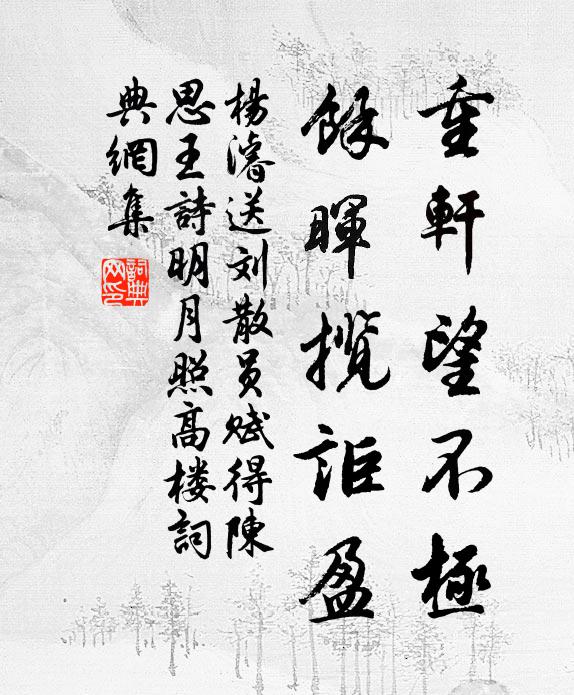 重軒望不極
餘暉攬詎盈
楊濬送刘散員赋得陳
思王詩明月照高楼詞
典網集
詞典网印